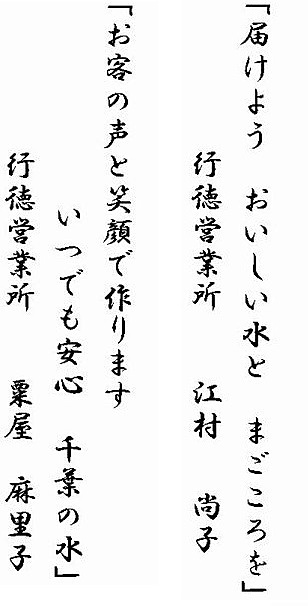 「届けよう　おいしい水と　まごころを」
行徳営業所　江村　尚子
「お客の声と笑顔で作ります
いつでも安心　千葉の水」
行徳営業所　粟屋　麻里子